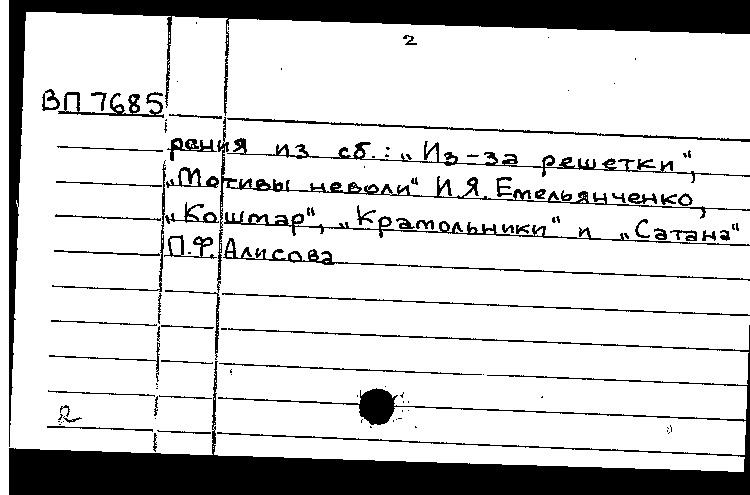 2
ВП 7685
рения из сб.: „Из-за решетки",
„Мотивы неволи" И.Я. Емельянченко,
„Кошмар", „Крамольники" и „Сатана"
П.Ф. Алисова
2